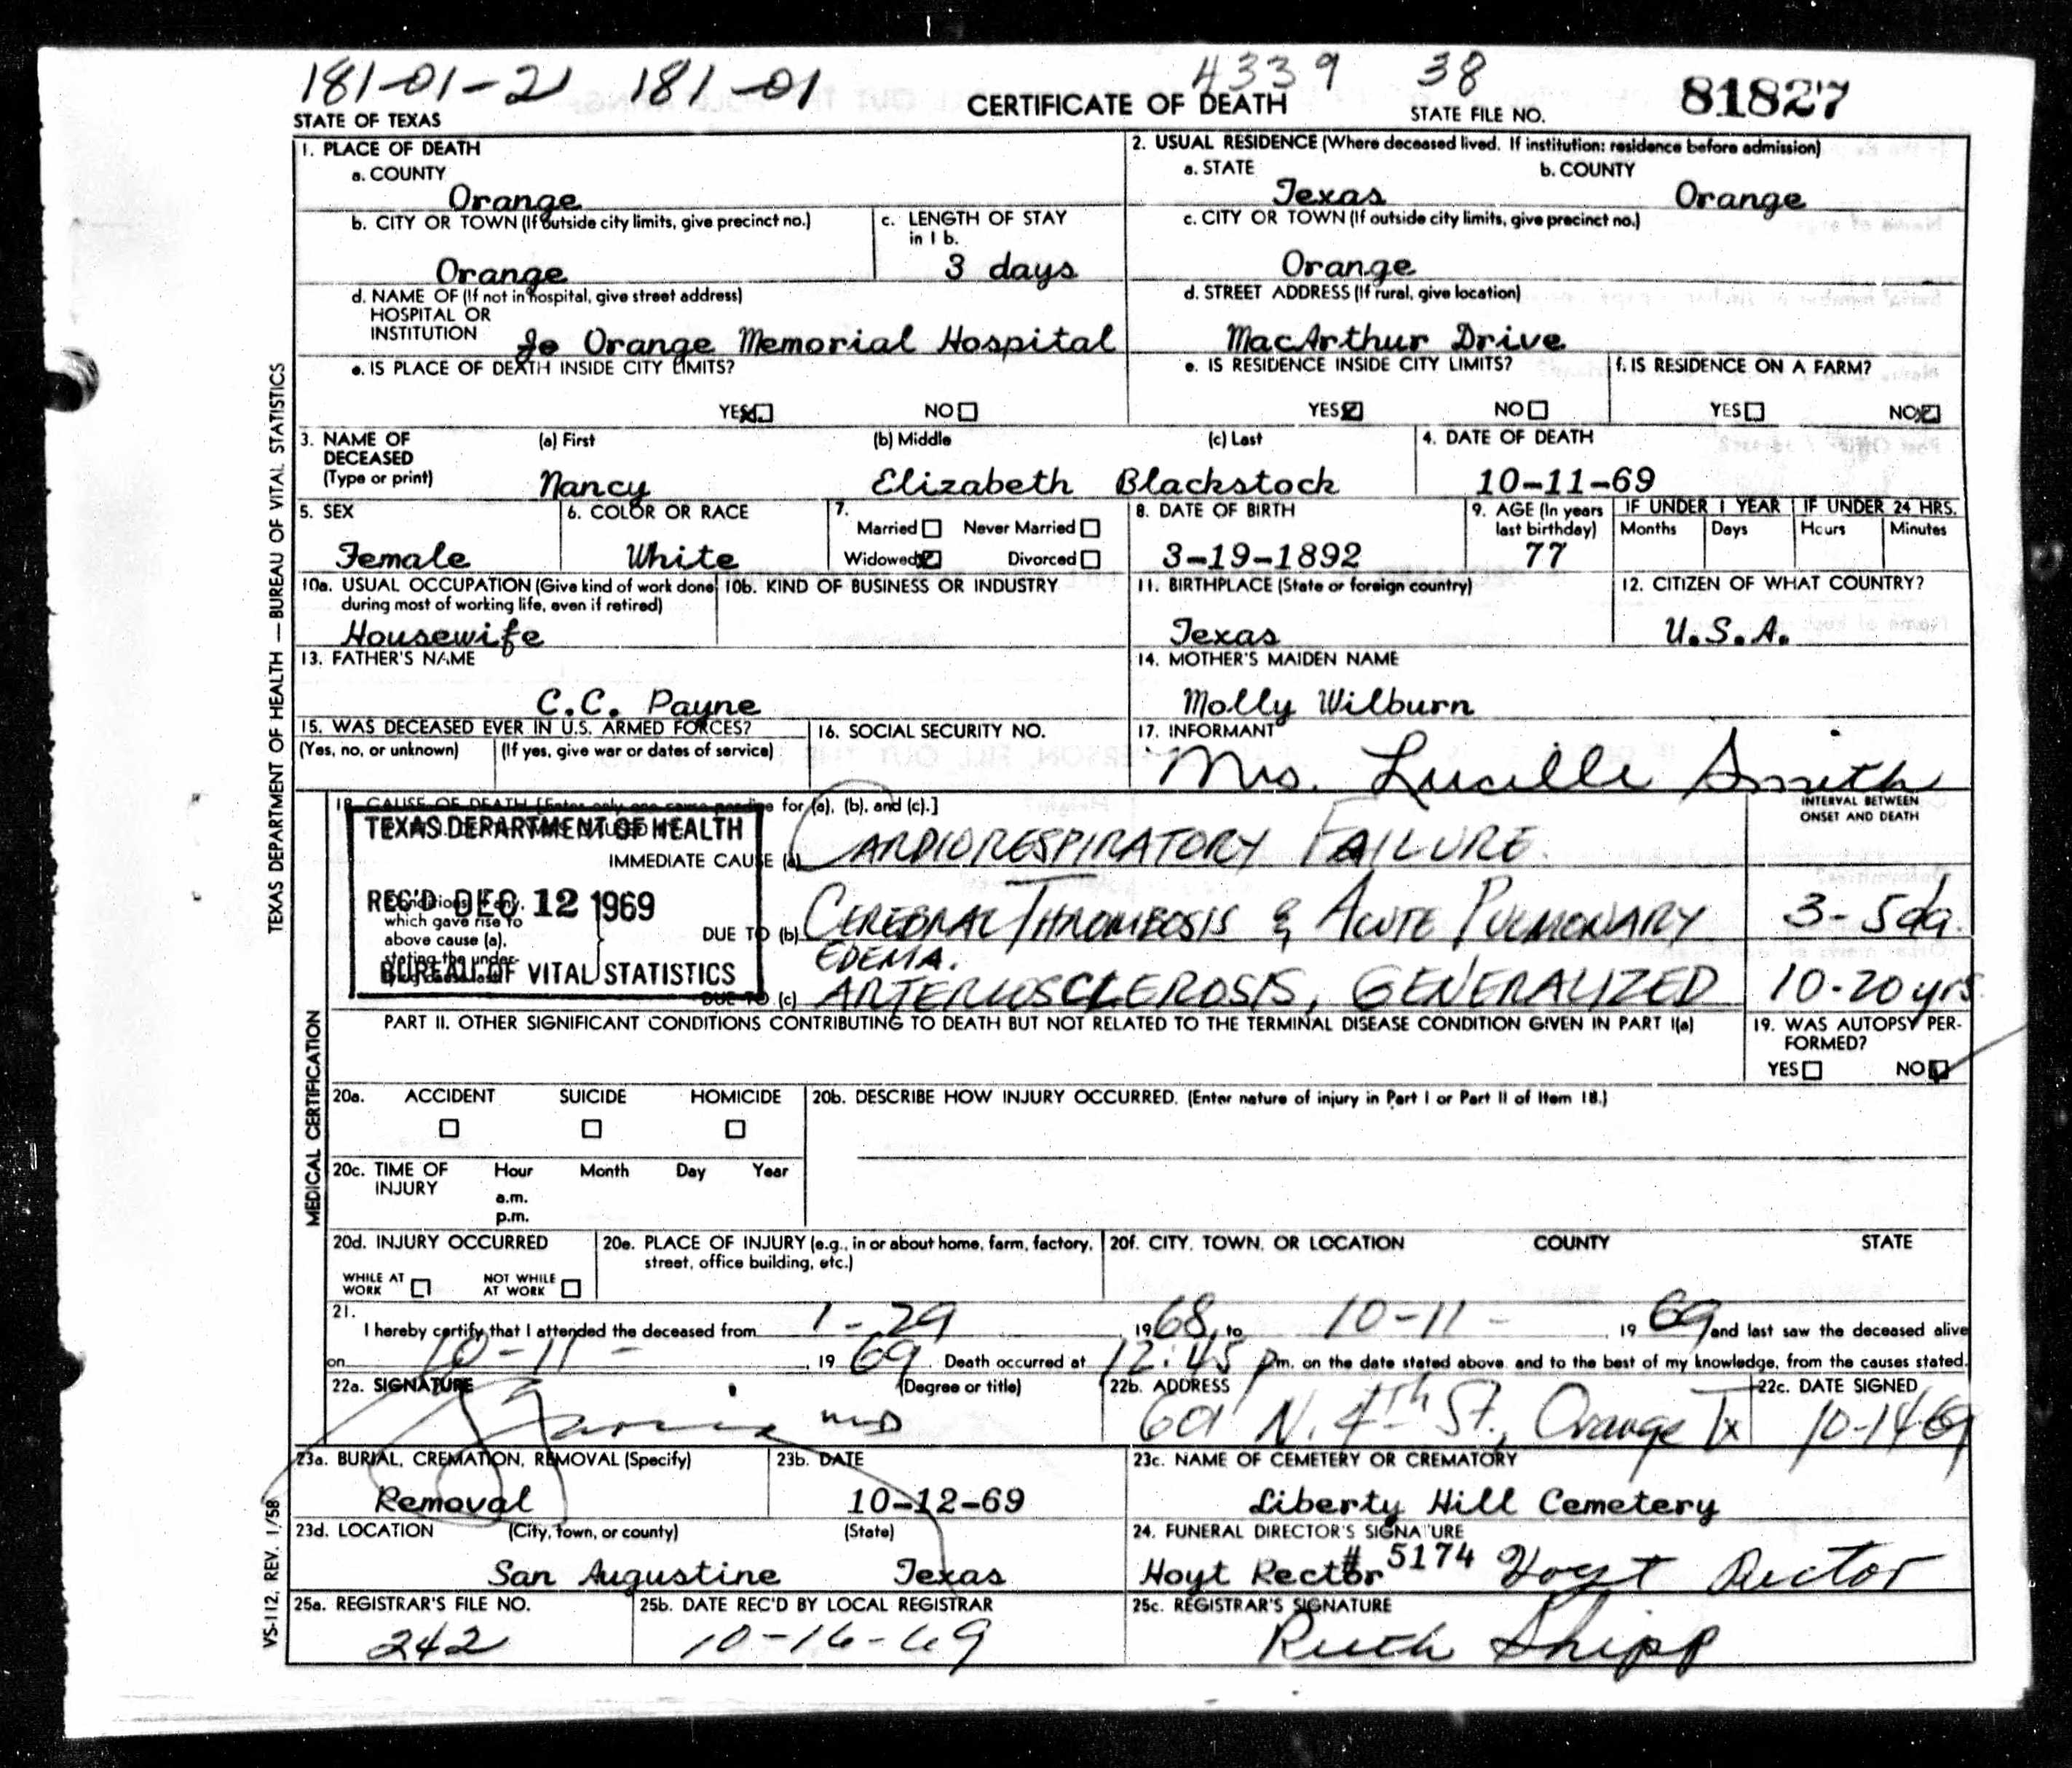 181-01-21 181-01 4339 38
STATE OF TEXAS CERTIFICATE OF DEATH STATE FILE NO. 81827
TEXAS DEPARTMENT OF HEALTH — BUREAU OF VITAL STATISTICS
1. PLACE OF DEATH
a. COUNTY
Orange
2. USUAL RESIDENCE (Where deceased lived. If institution: residence before admission)
a. STATE b. COUNTY
Texas Orange
b. CITY OR TOWN (If outside city limits, give precinct no.)
Orange
c. LENGTH OF STAY
in 1 b.
3 days
c. CITY OR TOWN (If outside city limits, give precinct no.)
Orange
d. NAME OF (If not in hospital, give street address)
HOSPITAL OR
INSTITUTION Orange Memorial Hospital
d. STREET ADDRESS (If rural, give location)
MacArthur Drive
e. IS PLACE OF DEATH INSIDE CITY LIMITS?
YES NO
e. IS RESIDENCE INSIDE CITY LIMITS?
YES NO
f. IS RESIDENCE ON A FARM?
YES NO
3. NAME OF (a) First (b) Middle (c) Last
DECEASED
(Type or print) Nancy Elizabeth Blackstock
4. DATE OF DEATH
10-11-69
5. SEX
Female
6. COLOR OR RACE
White
7.
Married Never Married
Widowed Divorced
8. DATE OF BIRTH
3-19-1892
9. AGE (In years
last birthday)
77
IF UNDER 1 YEAR
Months Days
IF UNDER 24 HRS.
Hours Minutes
10a. USUAL OCCUPATION (Give kind of work done
during most of working life, even if retired)
Housewife
10b. KIND OF BUSINESS OR INDUSTRY
11. BIRTHPLACE (State or foreign country)
Texas
12. CITIZEN OF WHAT COUNTRY?
U.S.A.
13. FATHER'S NAME
C.C. Payne
14. MOTHER'S MAIDEN NAME
Molly Wilburn
15. WAS DECEASED EVER IN U.S. ARMED FORCES?
(Yes, no, or unknown) (If yes, give war or dates of service)
16. SOCIAL SECURITY NO.
17. INFORMANT
Mrs. Lucille Smith
MEDICAL CERTIFICATION
18. CAUSE OF DEATH [Enter only one cause per line for (a), (b), and (c).]
INTERVAL BETWEEN
ONSET AND DEATH
TEXAS DEPARTMENT OF HEALTH
REC'D DEC 12 1969
BUREAU OF VITAL STATISTICS
IMMEDIATE CAUSE (a) CARDIORESPIRATORY FAILURE.
Conditions, if any,
which gave rise to
above cause (a),
stating the under-
DUE TO (b) CEREBRAL THROMBOSIS & ACUTE PULMONARY 3-5da.
EDEMA.
DUE TO (c) ARTERIOSCLEROSIS, GENERALIZED 10-20yrs
PART II. OTHER SIGNIFICANT CONDITIONS CONTRIBUTING TO DEATH BUT NOT RELATED TO THE TERMINAL DISEASE CONDITION GIVEN IN PART I(a)
19. WAS AUTOPSY PER-
FORMED?
YES NO
20a. ACCIDENT SUICIDE HOMICIDE
20b. DESCRIBE HOW INJURY OCCURRED. (Enter nature of injury in Part I or Part II of Item 18.)
20c. TIME OF Hour Month Day Year
INJURY
a.m.
p.m.
20d. INJURY OCCURRED
WHILE AT WORK NOT WHILE AT WORK
20e. PLACE OF INJURY (e.g., in or about home, farm, factory,
street, office building, etc.)
20f. CITY, TOWN, OR LOCATION COUNTY STATE
21.
I hereby certify that I attended the deceased from 1-29 1968, to 10-11- , 1969 and last saw the deceased alive
on 10-11- , 1969. Death occurred at 12:45 pm. on the date stated above and to the best of my knowledge, from the causes stated.
22a. SIGNATURE (Degree or title)
MD
22b. ADDRESS
601 N. 4th St., Orange Tx
22c. DATE SIGNED
10-14-69
23a. BURIAL, CREMATION, REMOVAL (Specify)
Removal
23b. DATE
10-12-69
23c. NAME OF CEMETERY OR CREMATORY
Liberty Hill Cemetery
23d. LOCATION (City, town, or county) (State)
San Augustine Texas
24. FUNERAL DIRECTOR'S SIGNATURE
Hoyt Rector # 5174 Hoyt Rector
25a. REGISTRAR'S FILE NO.
242
25b. DATE REC'D BY LOCAL REGISTRAR
10-16-69
25c. REGISTRAR'S SIGNATURE
Ruth Shipp
VS-112, REV. 1/58